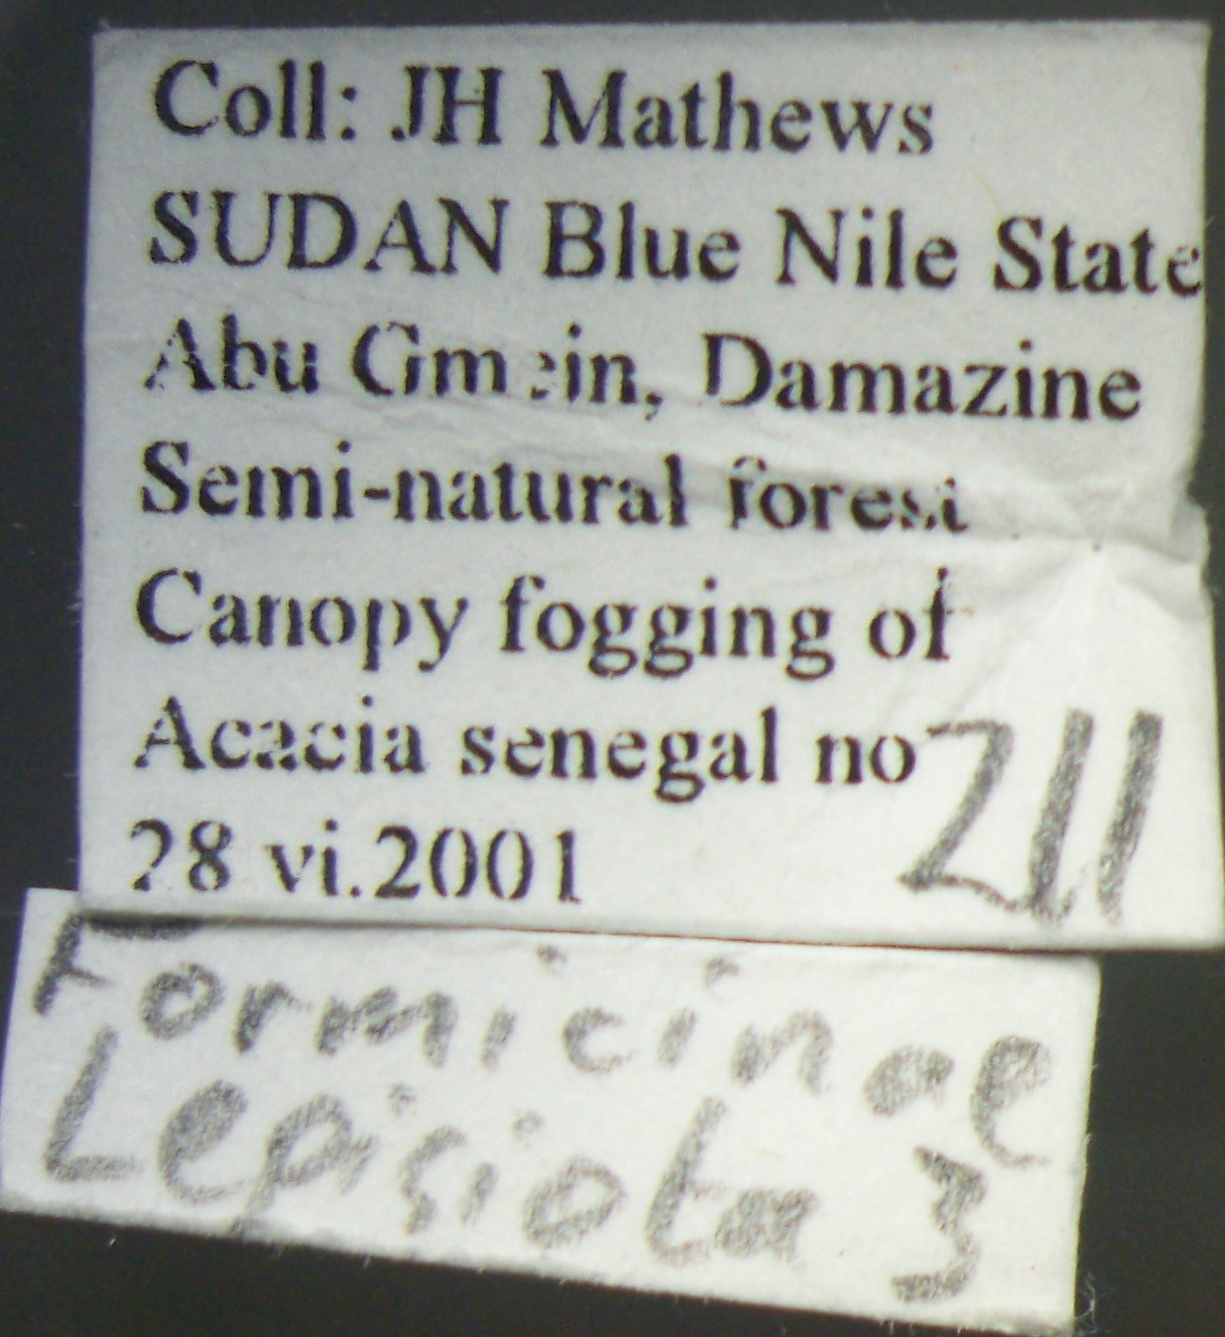 Coll: JH Mathews
SUDAN Blue Nile State
Abu Gmein, Damazine
Semi-natural forest
Canopy fogging of
Acacia senegal no 211
28 vi.2001
Formicinae
Lepisiota 3